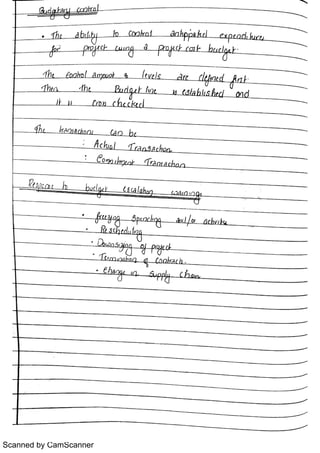 Budgetary control
• The ability to control anticipated expenditures
for project using a project cost budget.
The control amount & levels are defined first
Then the Budget line is established and
it is cross checked
The transactions can be
: Actual Transaction
: Commitment Transaction
Response to budget escalation warnings
• freezing spending and/or activities
• Rescheduling
• Downsizing of project
• Termination of contracts.
• Change in supply chain
Scanned by CamScanner